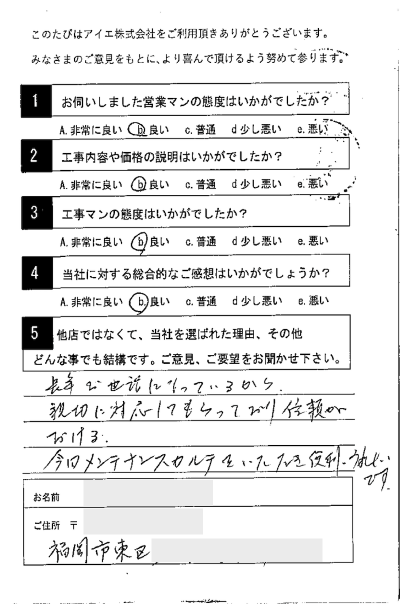 このたびはアイエ株式会社をご利用頂きありがとうございます。
みなさまのご意見をもとに、より喜んで頂けるよう努めて参ります。
1 お伺いしました営業マンの態度はいかがでしたか？
A. 非常に良い b 良い c. 普通 d 少し悪い e. 悪い
2 工事内容や価格の説明はいかがでしたか？
A. 非常に良い b 良い c. 普通 d 少し悪い e. 悪い
3 工事マンの態度はいかがでしたか？
A. 非常に良い b 良い c. 普通 d 少し悪い e. 悪い
4 当社に対する総合的なご感想はいかがでしょうか？
A. 非常に良い b 良い c. 普通 d 少し悪い e. 悪い
5 他店ではなくて、当社を選ばれた理由、その他
どんな事でも結構です。ご意見、ご要望をお聞かせ下さい。
長年お世話になっているから.
親切に対応してもらっており信頼が
おける.
今回メンテナンスカルテをいただき便利、うれしい
です.
お名前
ご住所 〒
福岡市東区